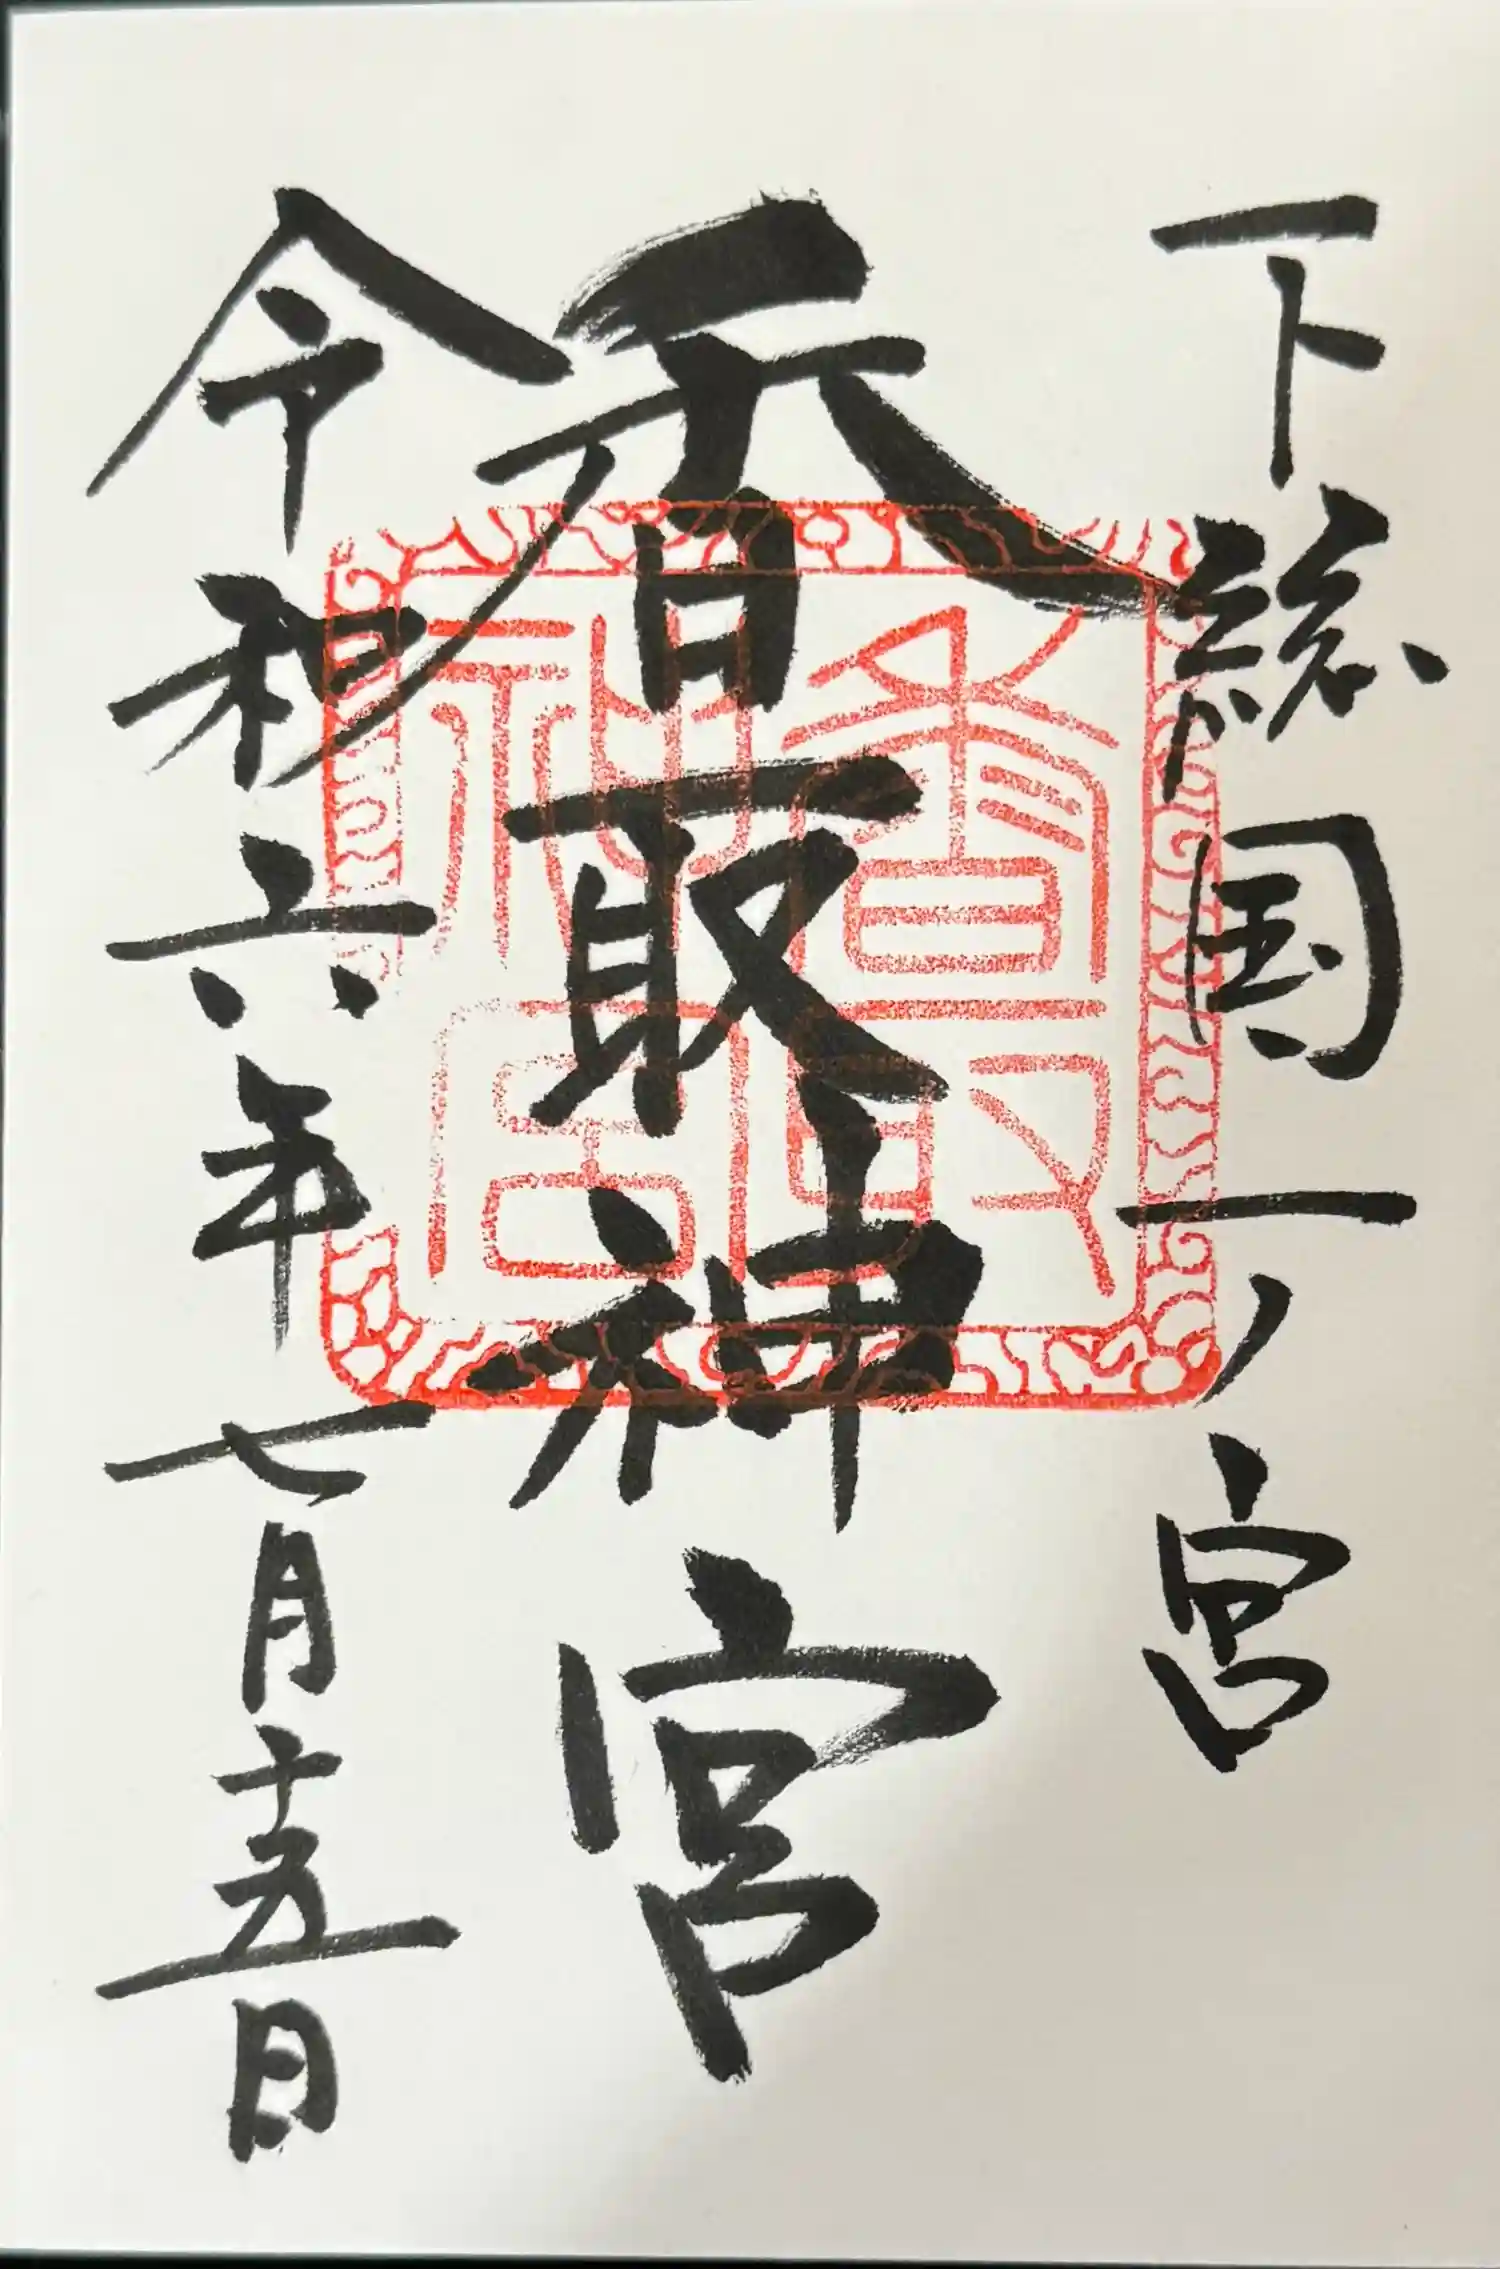 下総国一ノ宮
香取神宮
香取神宮
令和六年七月十五日